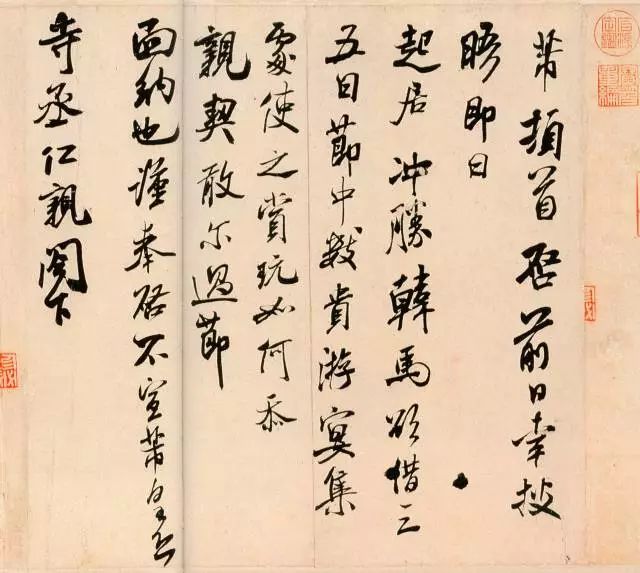 芾頓首啓前日幸披
晤即日
起居沖勝韓馬欲借三
五日節中數貴游宴集
處使之賞玩如何忝
親契敢爾過節
面納也謹奉啓不宣芾皇恐
寺丞仁親閤下